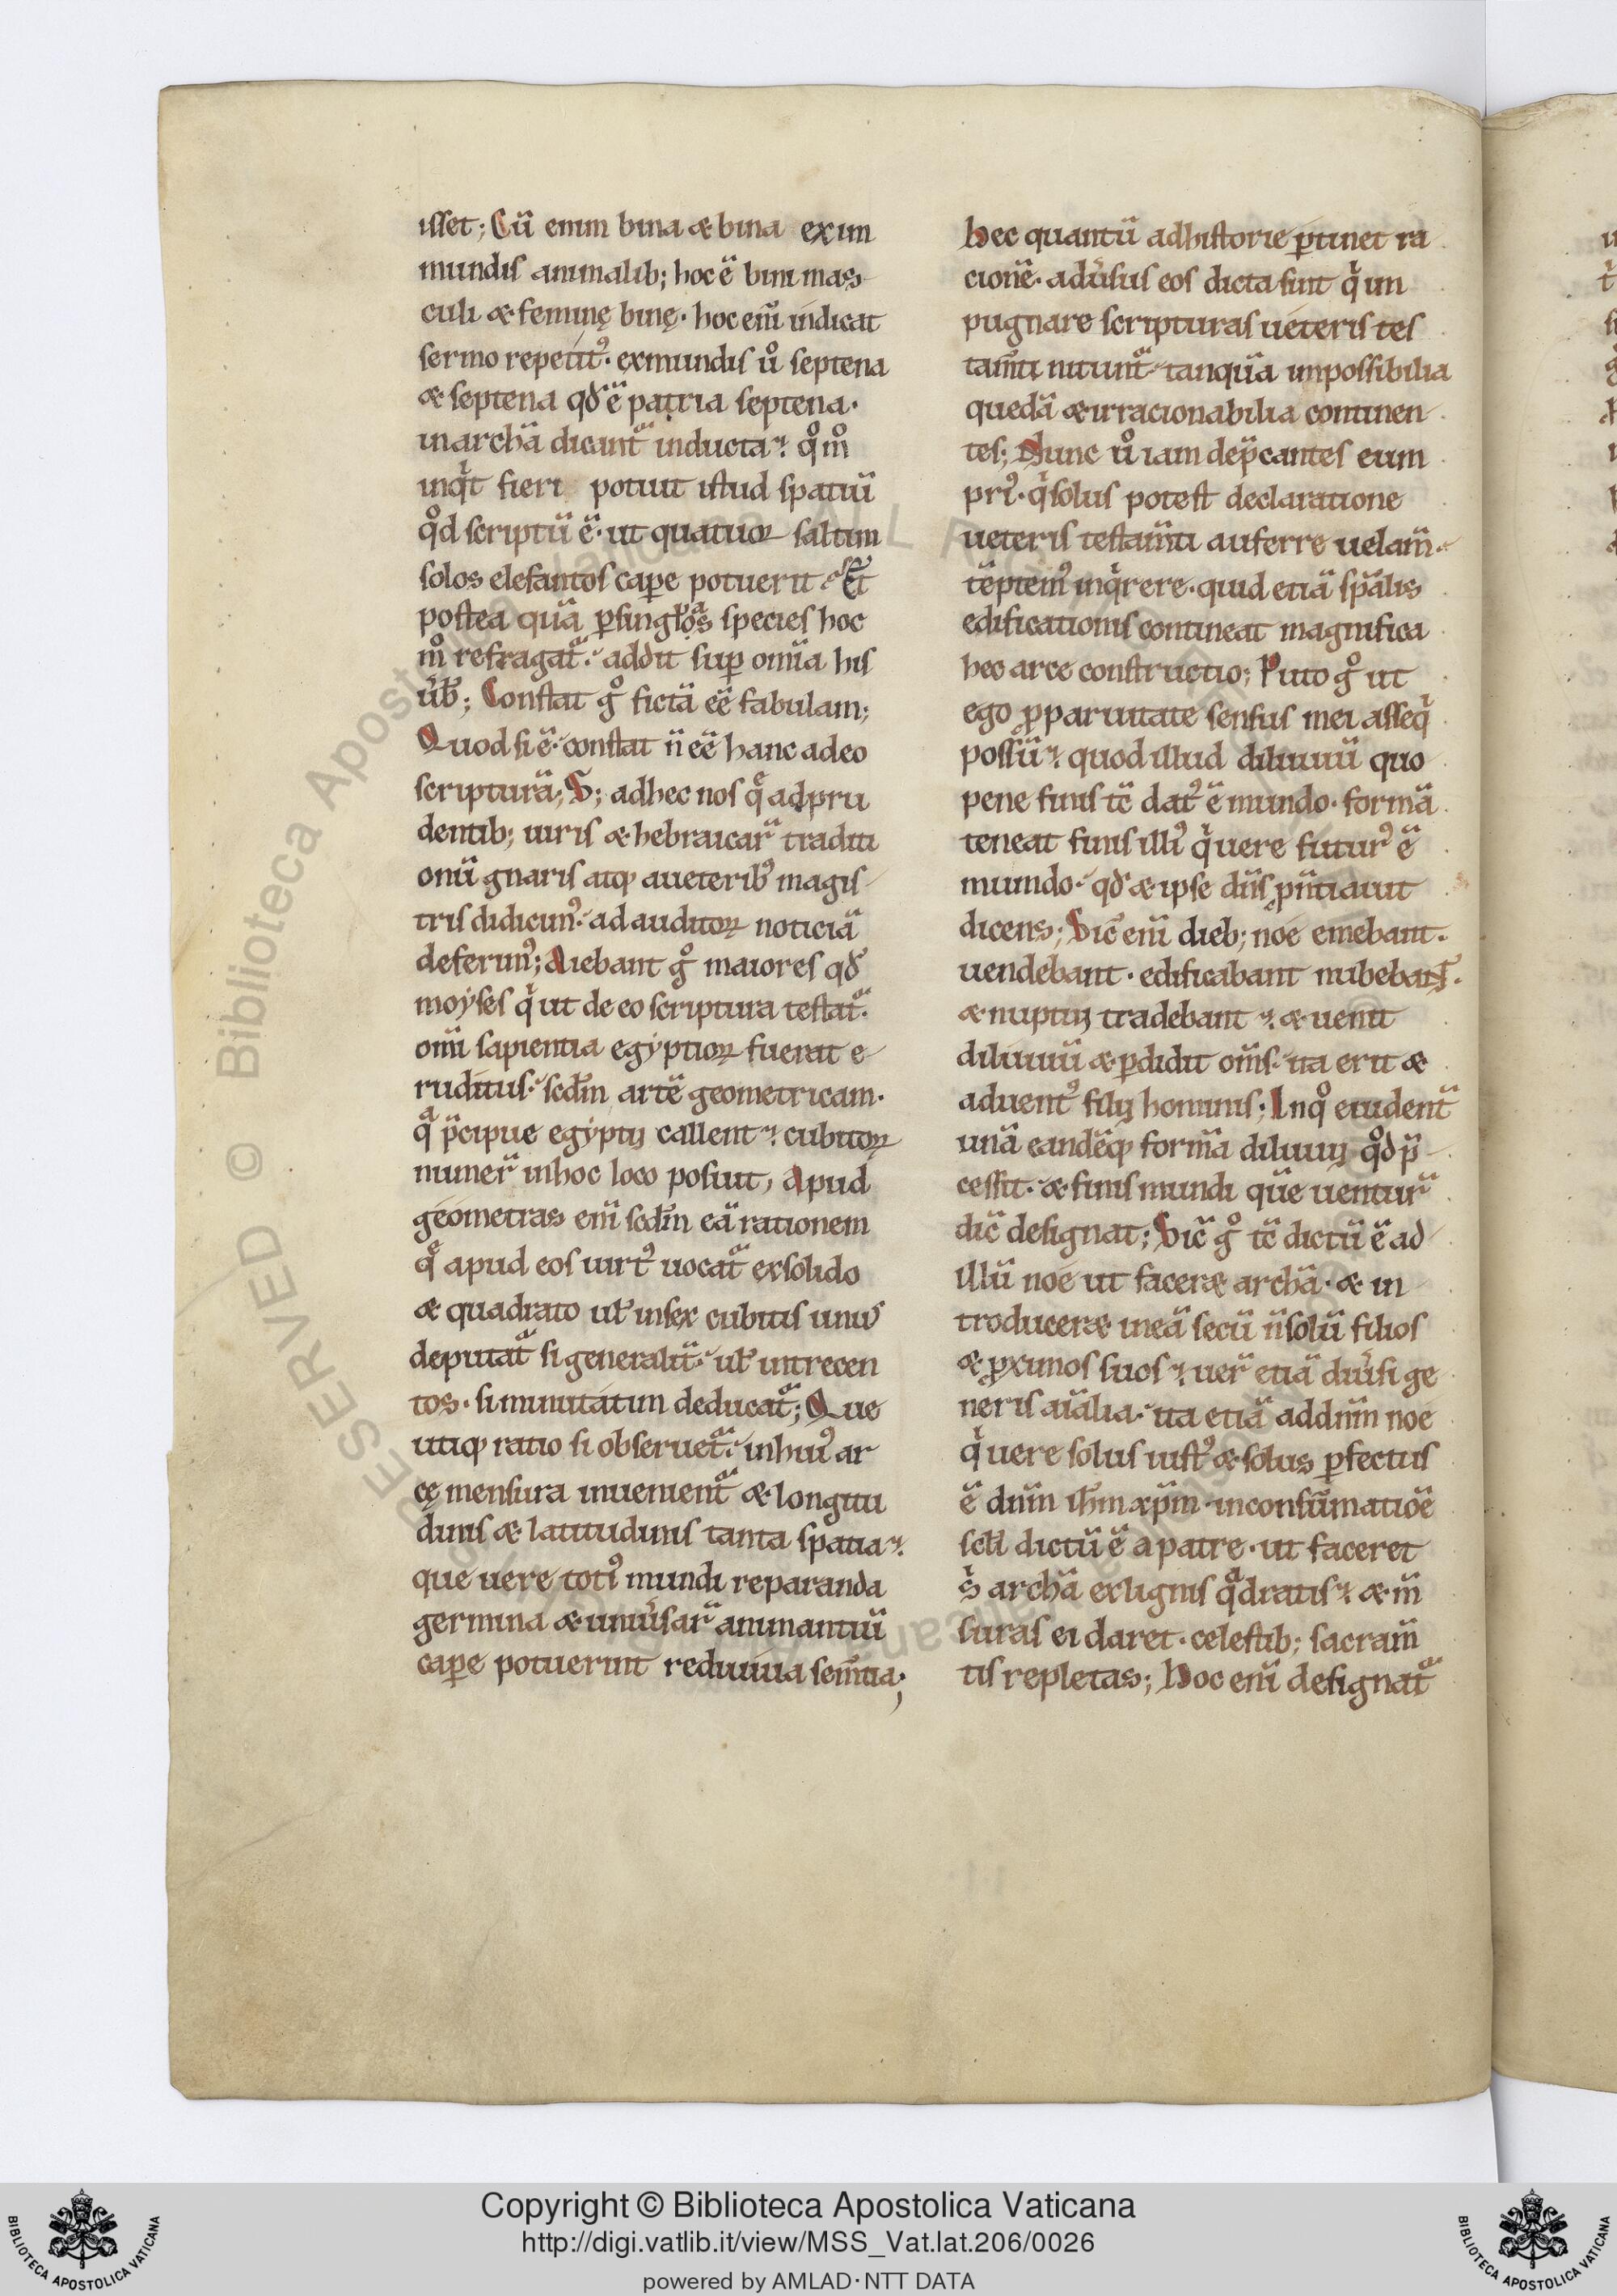 isset; Cũ enim bina & bina ex im
mundis animalib; hoc ẽ bini mas
culi & feminę binę. hoc em̃ indicat
sermo repetit᷒. ex mundis u̾o septena
& septena qđ ẽ patria septena.
in archã dicant᷑ inducta. qͦm̊
inqͥt fieri potuit istud spatiũ
qͦd scriptũ ẽ. ut quatuoꝝ saltim
solos elefantos cap̲e potuerit. Et
postea quã ꝑ singłoˢ species hoc
m̊ refragat᷑. addit suꝑ om̃ia his
ũb̃; Constat gͦ fictã eẽ fabulam;
Quod si ẽ. constat ñ eẽ hanc adeo
scripturã; S; ad hec nos qͤ ad pru
dentib; uiris & hebraicar᷑ traditi
onũ gnaris atqꝫ a ueterib᷒ magis
tris didicim᷒. ad auditoꝝ noticiã
deferim᷒; Aiebant gͦ maiores qđ
moyses qͥ ut de eo scriptura testat᷑.
om̃i sapientia egyptioꝝ fuerat e
ruditus. sedm̃ artẽ geometricam.
qᷓ p̃cipue egyptij callent. cubitoꝝ
numer᷑ in hoc loco posuit, Apud
geometras em̃ sedm̃ eã rationem
qͤ apud eos uirt᷒ uocat᷑ ex solido
& quadrato uł in sex cubitis unus
deputat᷑ si generalit᷑. uł in trecen
tos. si minutatim deducat᷑; Que
utiqꝫ ratio si obseruet᷑. in hui᷒ ar
cę mensura inuenient᷑ & longitu
dinis & latitudinis tanta spatia.
que uere toti᷒ mundi reparanda
germina & uniũsar᷑ animantiũ
caꝑe potuerint rediuiua sem̃tia;
Hec quantũ ad historie ꝑtinet ra
cionẽ. adũsus eos dicta sint qͥ im
pugnare scripturas ueteris tes
tam̃ti nitunt᷑ tanquã impossibilia
quedã & irracionabilia continen
tes; Nunc u̾o iam dep̃cantes eum
pri᷒. qͥ solus potest declaratione
ueteris testam̃ti auferre uelam̃.
tẽptem᷒ inqͥrere. quid etiã sp̃alis
edificationis contineat magnifica
hec arce constructio; Puto gͦ ut
ego ꝓ paruitate sensus mei asseqͥ
possũ. quod illud diluuiũ quo
pene finis tc̃ dat᷒ ẽ mundo. formã
teneat finis illi᷒ qͥ uere futur᷒ ẽ
mundo. qđ & ipse dñs ꝓnũtiauit
dicens; Sic̃ em̃ dieb; noe emebant.
uendebant. edificabant nubebant.
& nuptij tradebant. & uenit
diluuiũ & ꝑdidit om̃s. ita erit &
aduent᷒ filij hominis; In qͦ euident᷑
unã eandẽqꝫ formã diluuij qͦd p̃
cessit. & finis mundi quẽ uentur᷑
dic̃ designat; Sic̃ gͦ tc̃ dictũ ẽ ad
illũ noe ut facer& archã. & in
troducer& in eã secũ ñ solũ filios
& ꝓximos suos. uer᷑ etiã diũsi ge
neris aĩalia. ita etiã ad dñm noe
qͥ uere solus iust᷒ & solus ꝑfectus
ẽ dñm ihm̃ xp̃m. in consũmatiõe
scłi dictũ ẽ a patre. ut faceret
s̾ archã ex lignis qᷓdratis. & m̃
suras ei daret. celestib; sacram̃
tis repletas; Hoc em̃ designat᷑
Copyright © Biblioteca Apostolica Vaticana
http://digi.vatlib.it/view/MSS_Vat.lat.206/0026
powered by AMLAD·NTT DATA